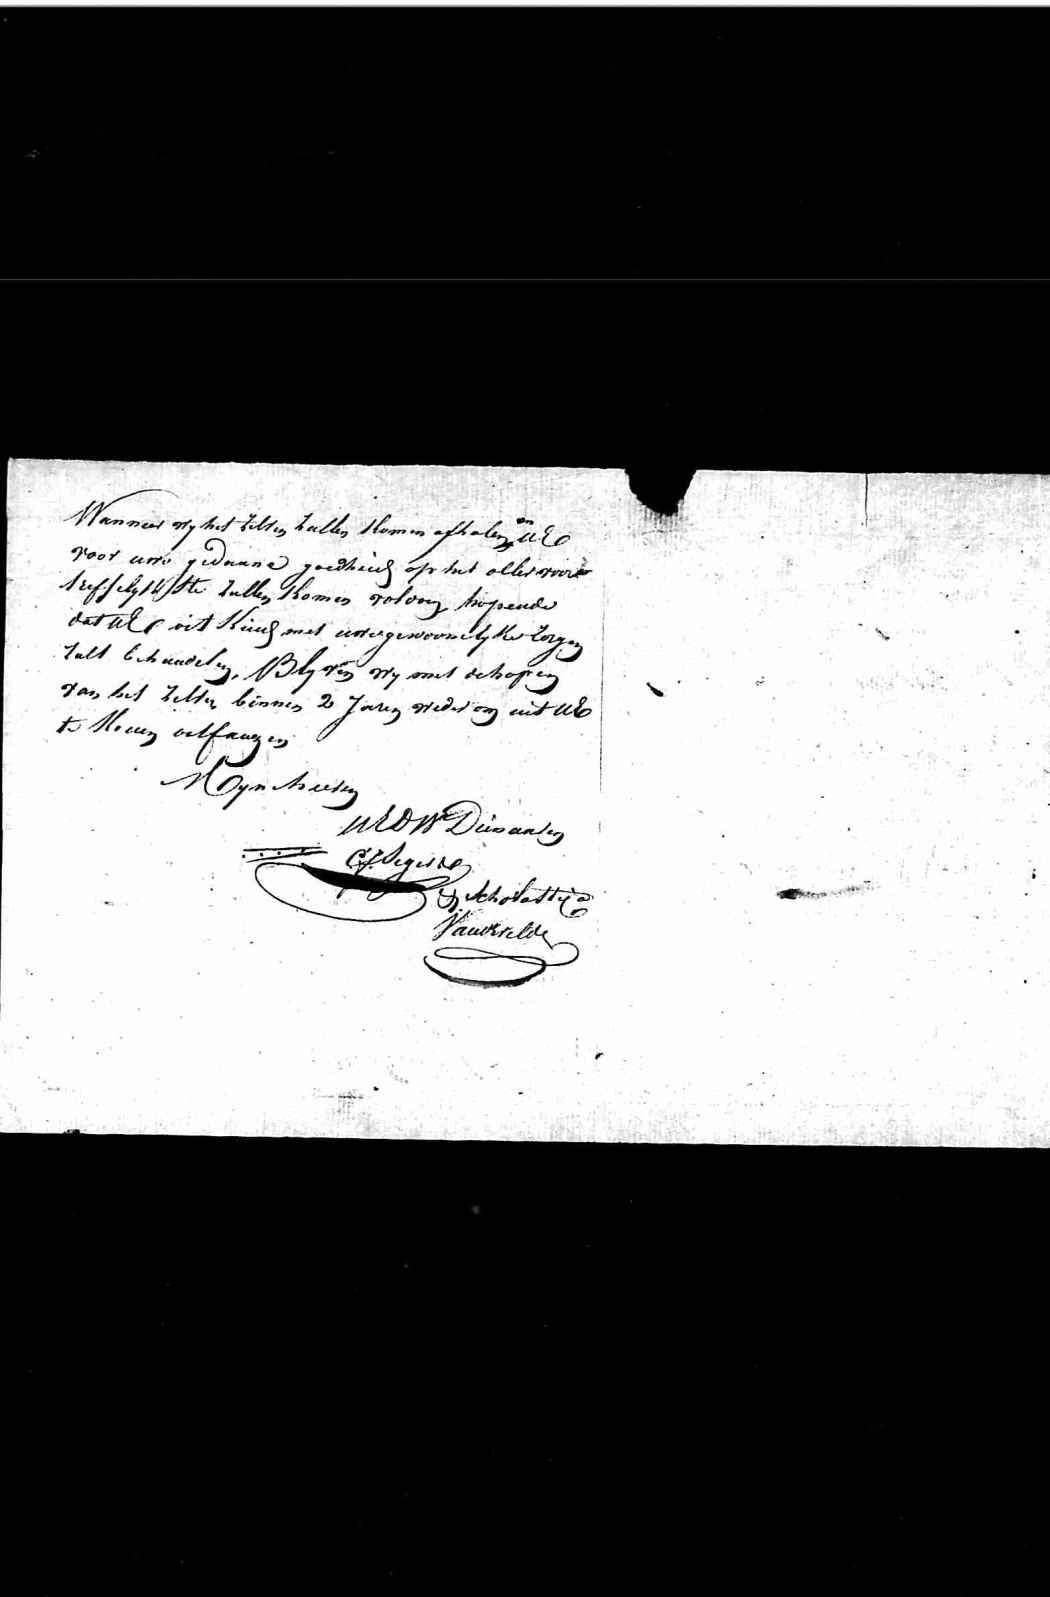 Wanneer wy het zelven zullen komen afhalen, en UE
voor uwe gedaane goedheid op het aller voor
treffelyksten zullen komen voldoen, hopende
dat UE dit kind met uwe gewoonelyke zorgen
zult behandelen, Blyven wy met de hopen
van het zelven binnen 2 Jaren weder om uit UE
te komen ontfangen
Myn heeren
UEDW Dienaaren
Segers
& Scholastica
Vandevelde